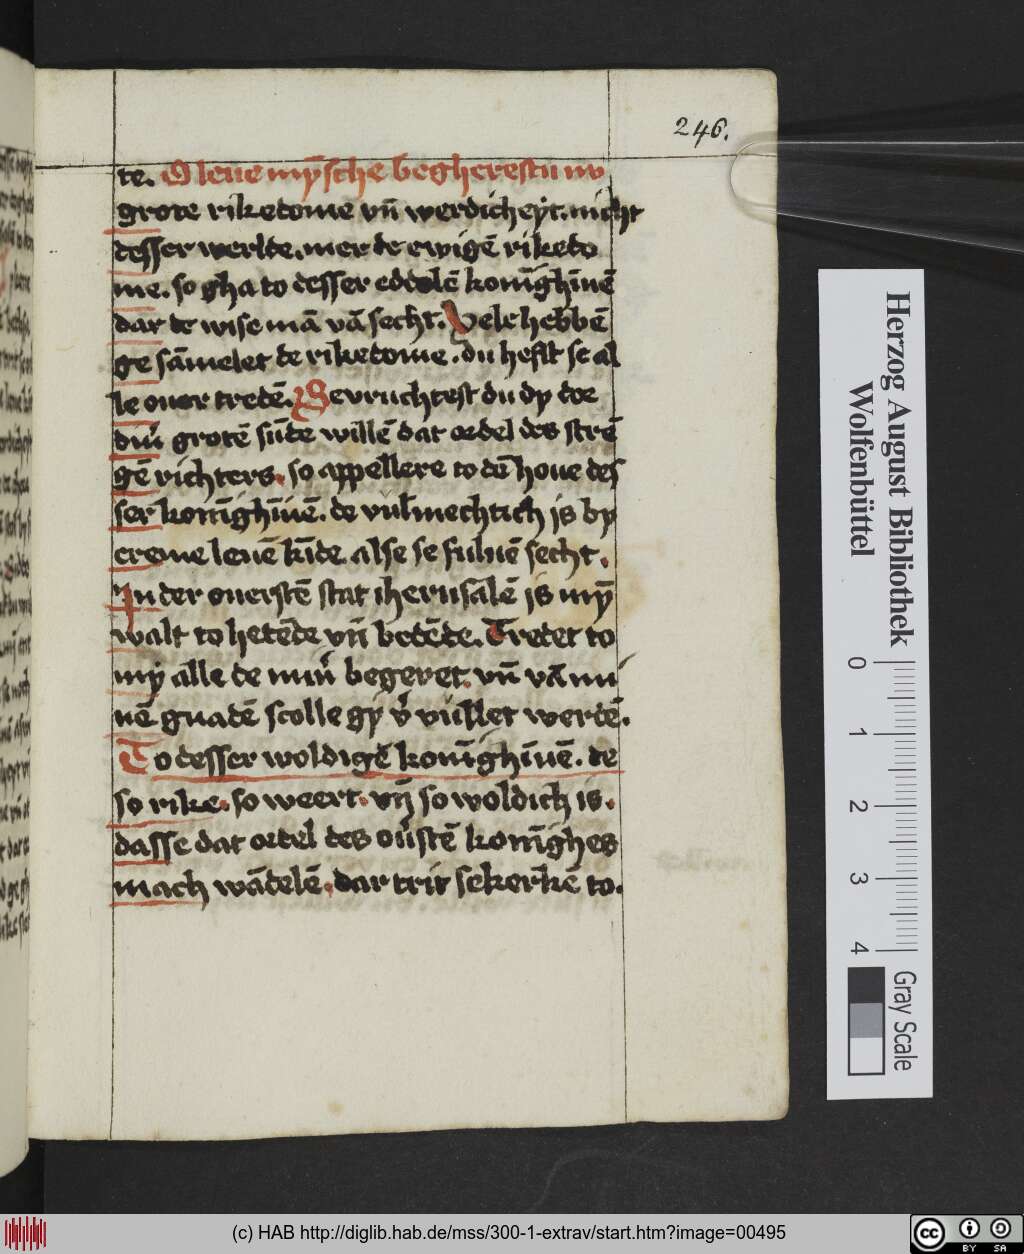 246.
te. O leue mȳsche begherestu nv
grote riketome vn̄ werdicheẏt. nicht
desser werlde. mer de ewigē riketo
me. so gha to desser eddelē konīghīnē
dar de wise mā vā secht. Vele hebbē
ge sāmelet de riketome. du hefst se al
le ouer tredē. Vevruchtest du dy doe
grotē sūde willē dat ordel des strē
gē richters. so appellere to dē houe des
ser konīghīnē. de vulmechtich is by
creme leuē kīde. alse se suluē secht.
In der ouerstē stat iherusalē is mȳ
walt to hetēde vn̄ bedēde. Tredet to
my alle de min̄ begeret. vn̄ vā mi
nē gnadē scolle gy v̄ vullet werdē.
To desser woldigē konīghīnē. de
so rike. so weert. vn̄ so woldich is.
dasse dat ordel des ou̾stē konīghes
mach wādelē. dar trit sekerkē to.
Herzog August Bibliothek
Wolfenbüttel
0 1 2 3 4
Gray Scale
(c) HAB http://diglib.hab.de/mss/300-1-extrav/start.htm?image=00495
cc BY SA